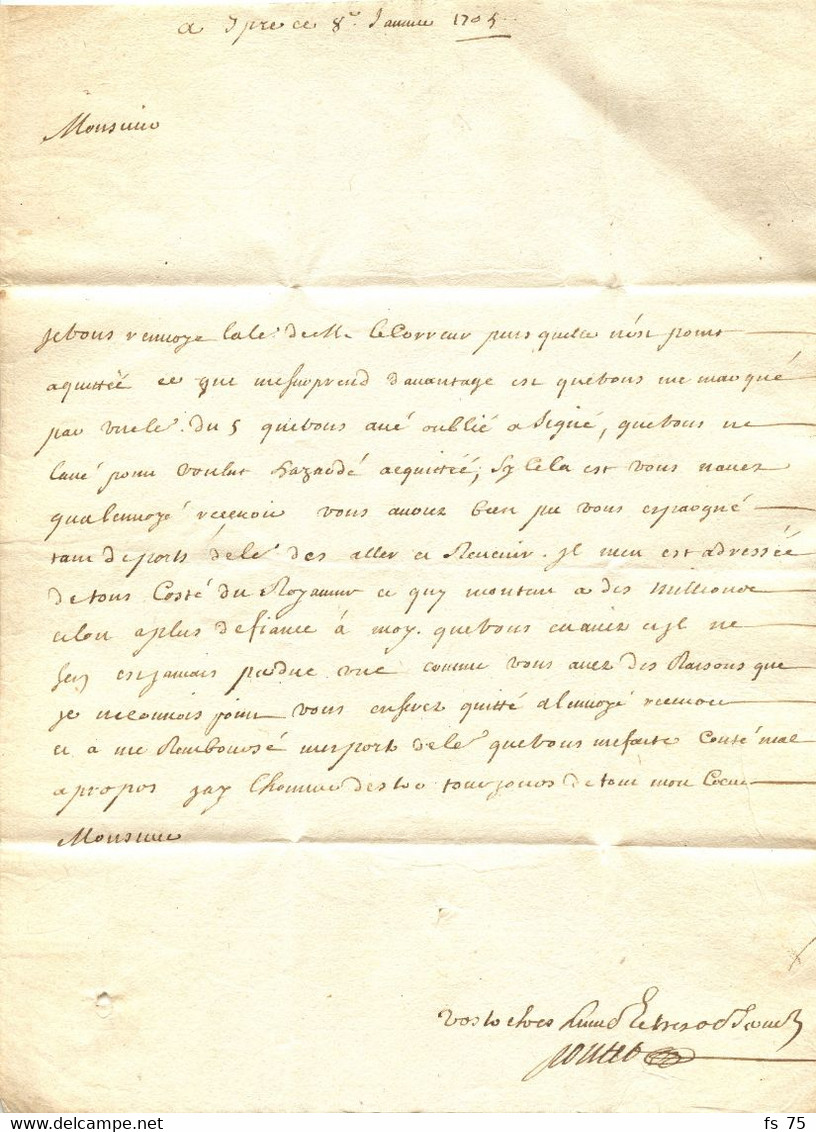 a Ipre ce 8e Januie 1705
Monsieur
Je vous renuoye la le. de Mr le Correur puis quelle n'est point
aquittéé ce que me surprend dauantage est que vous me marqué
par vre le. du 5 que vous aué oublié a Signé, que vous ne
laué point voulut hazardé acquittéé, Sy Cela est vous nauez
qua lenuoyé receuoir vous auriez bien pu vous espargné
tant de ports de le. des aller et Reuenir. Il men est adresséé
de tous Costé du Royaume ce quy monten a des millions
et lon a plus defiance à moy. que vous en auiez et jl ne
sen est jamais perdue vne comme vous auez des Raisons que
je ne connois point vous en serez quitté a lenuoyé receuoir
et a me Remboursé mes port de le. que vous me faite Couté mal
a propos jay lhonneur destre tousjours de tout mon Coeur
Monsieur
Vostre tres humb. et tres obeis
fs 75